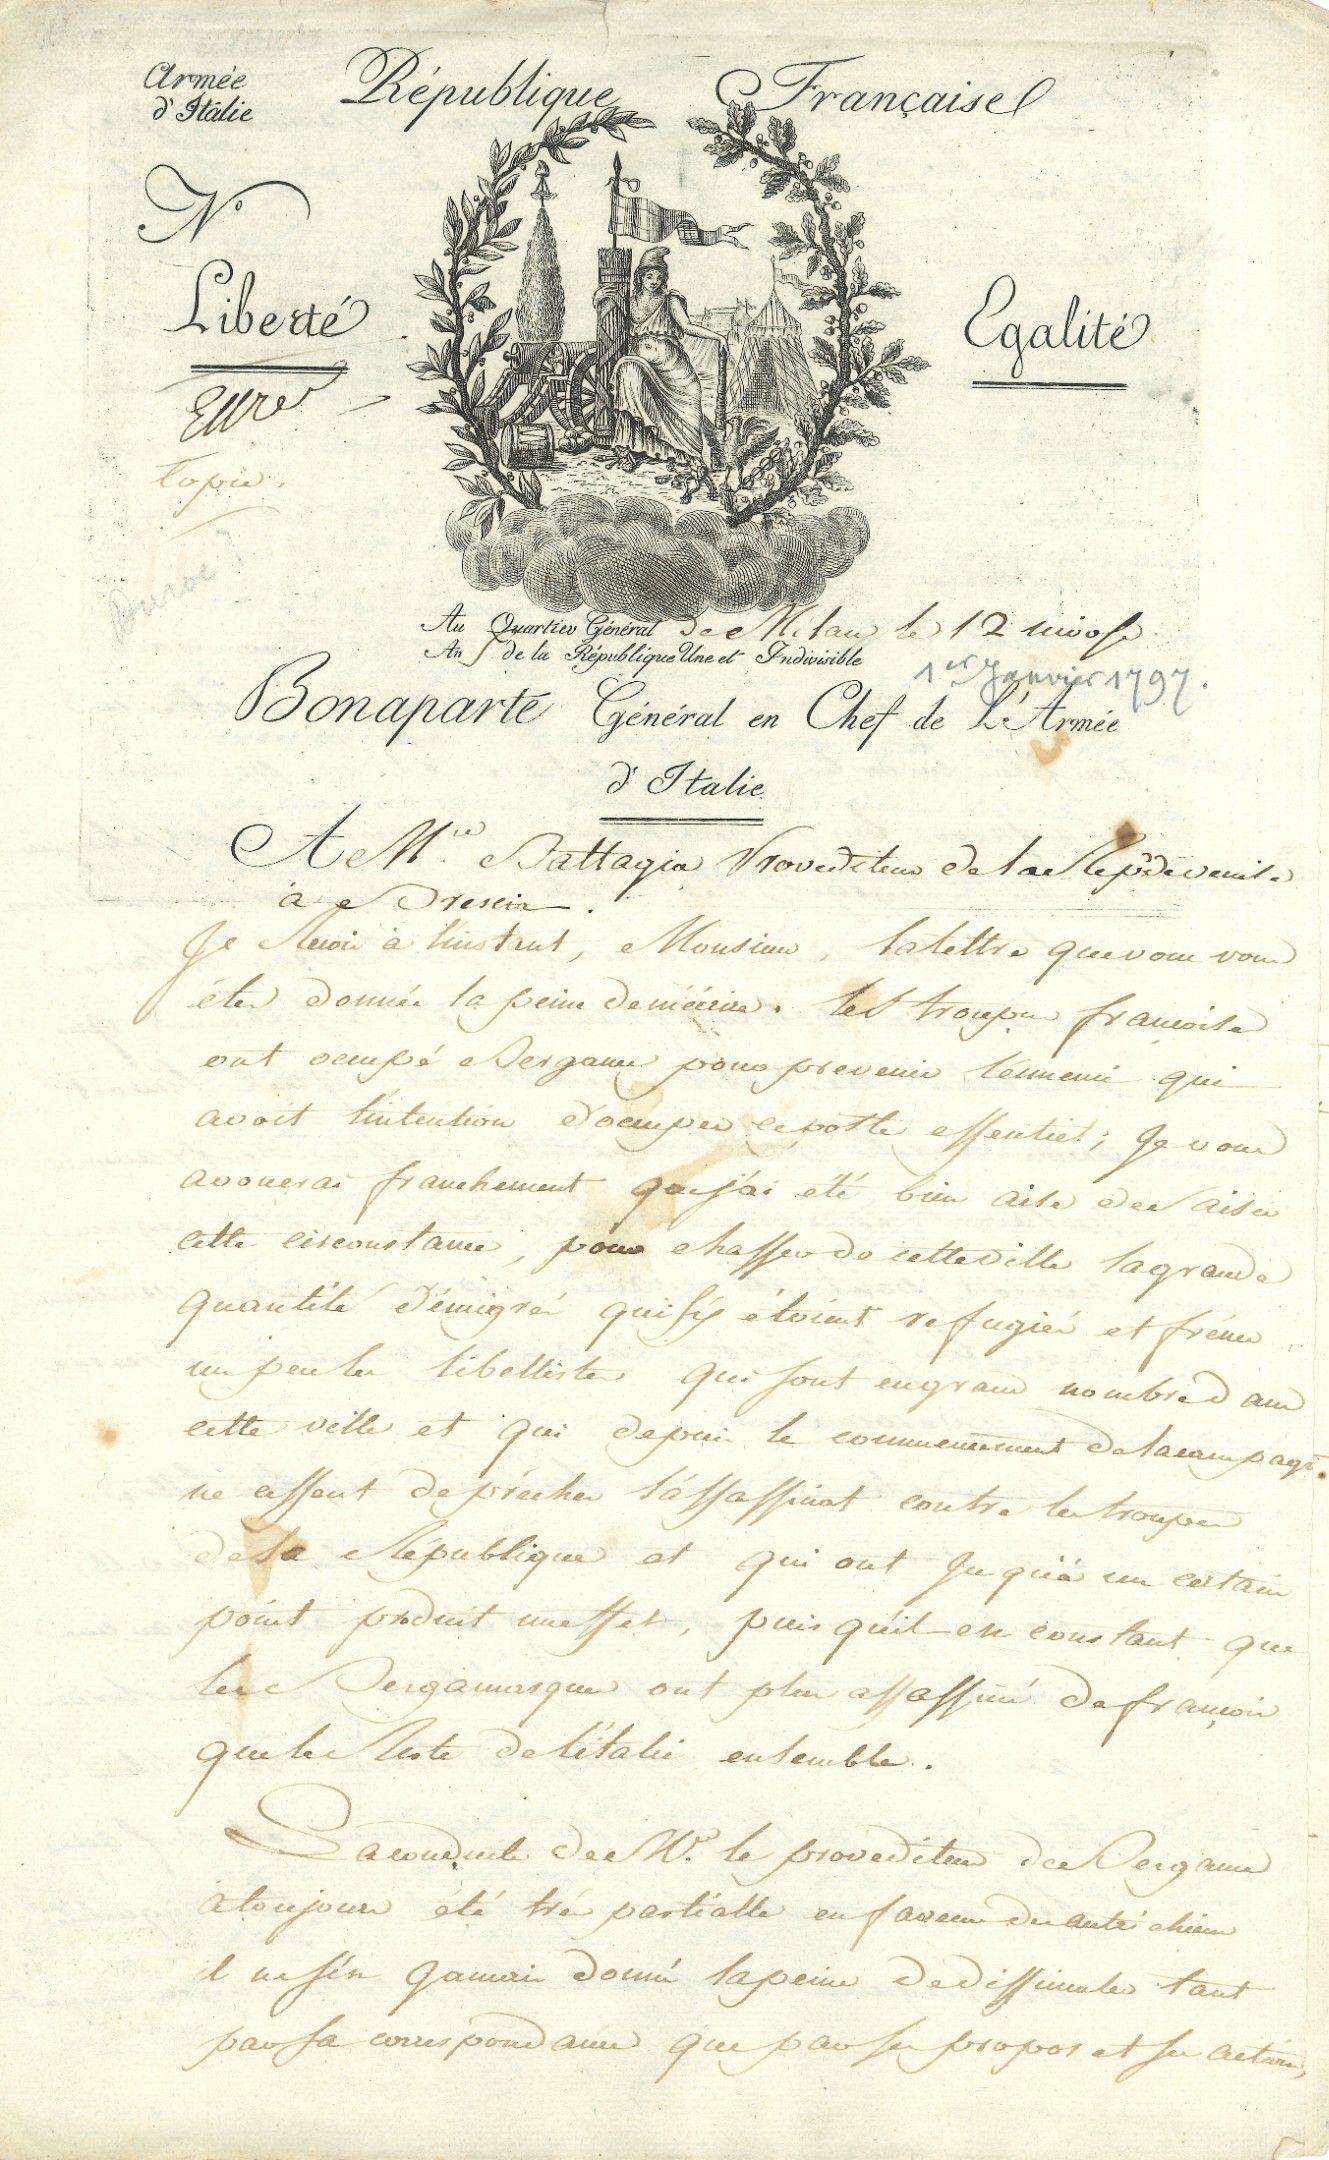 Armée
d'Italie
République Française
N°
Liberté
Egalité
Copie.
Duroc ?
Au Quartier Général de Milan le 12 nivose
An 5 de la République Une et Indivisible
1er Janvier 1797.
Bonaparte Général en Chef de L'Armée
d'Italie
A Mr. Battagia Provediteur de la Rep. de venise
à Brescia.
Je Reçois à l'instant, Monsieur, la lettre que vous vous
étes donnée la peine de m'écrire. les troupes françoises
ont occupé Bergame pour prevenir l'ennemi qui
avoit l'intention d'occuper ce poste essentiel; Je vous
avouerai franchement que j'ai été bien aise de saisir
cette circonstance, pour chasser de cette ville la grande
quantité d'émigrés qui s'y étoient refugiés et
un peu les libellistes qui sont en grand nombre dans
cette ville et qui depuis le commencement de la campagne
ne cessent de précher l'assassinat contre les troupes
de la République et qui ont Jusqu'à un certain
point produit un effet, puis qu'il est constant que
les Bergamasques ont plus assassiné de françois
que le Reste de l'italie ensemble.
La conduite de Mr. le provediteur de Bergame
a toujours été trés partialle en faveur des autrichiens
il ne s'est Jamais donné la peine de dissimuler tant
par sa correspondance que par ses propos et ses actions,